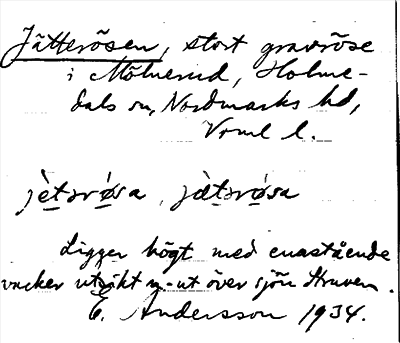 Jätterösen, stort gravröse
i Mölnerud, Holme-
dals sn, Nordmarks hd,
Vrml l.
jètsrǿsa, jætsrǿsa
Ligger högt med enastående
vacker utsikt n.-ut över sjön
E. Andersson 1934.